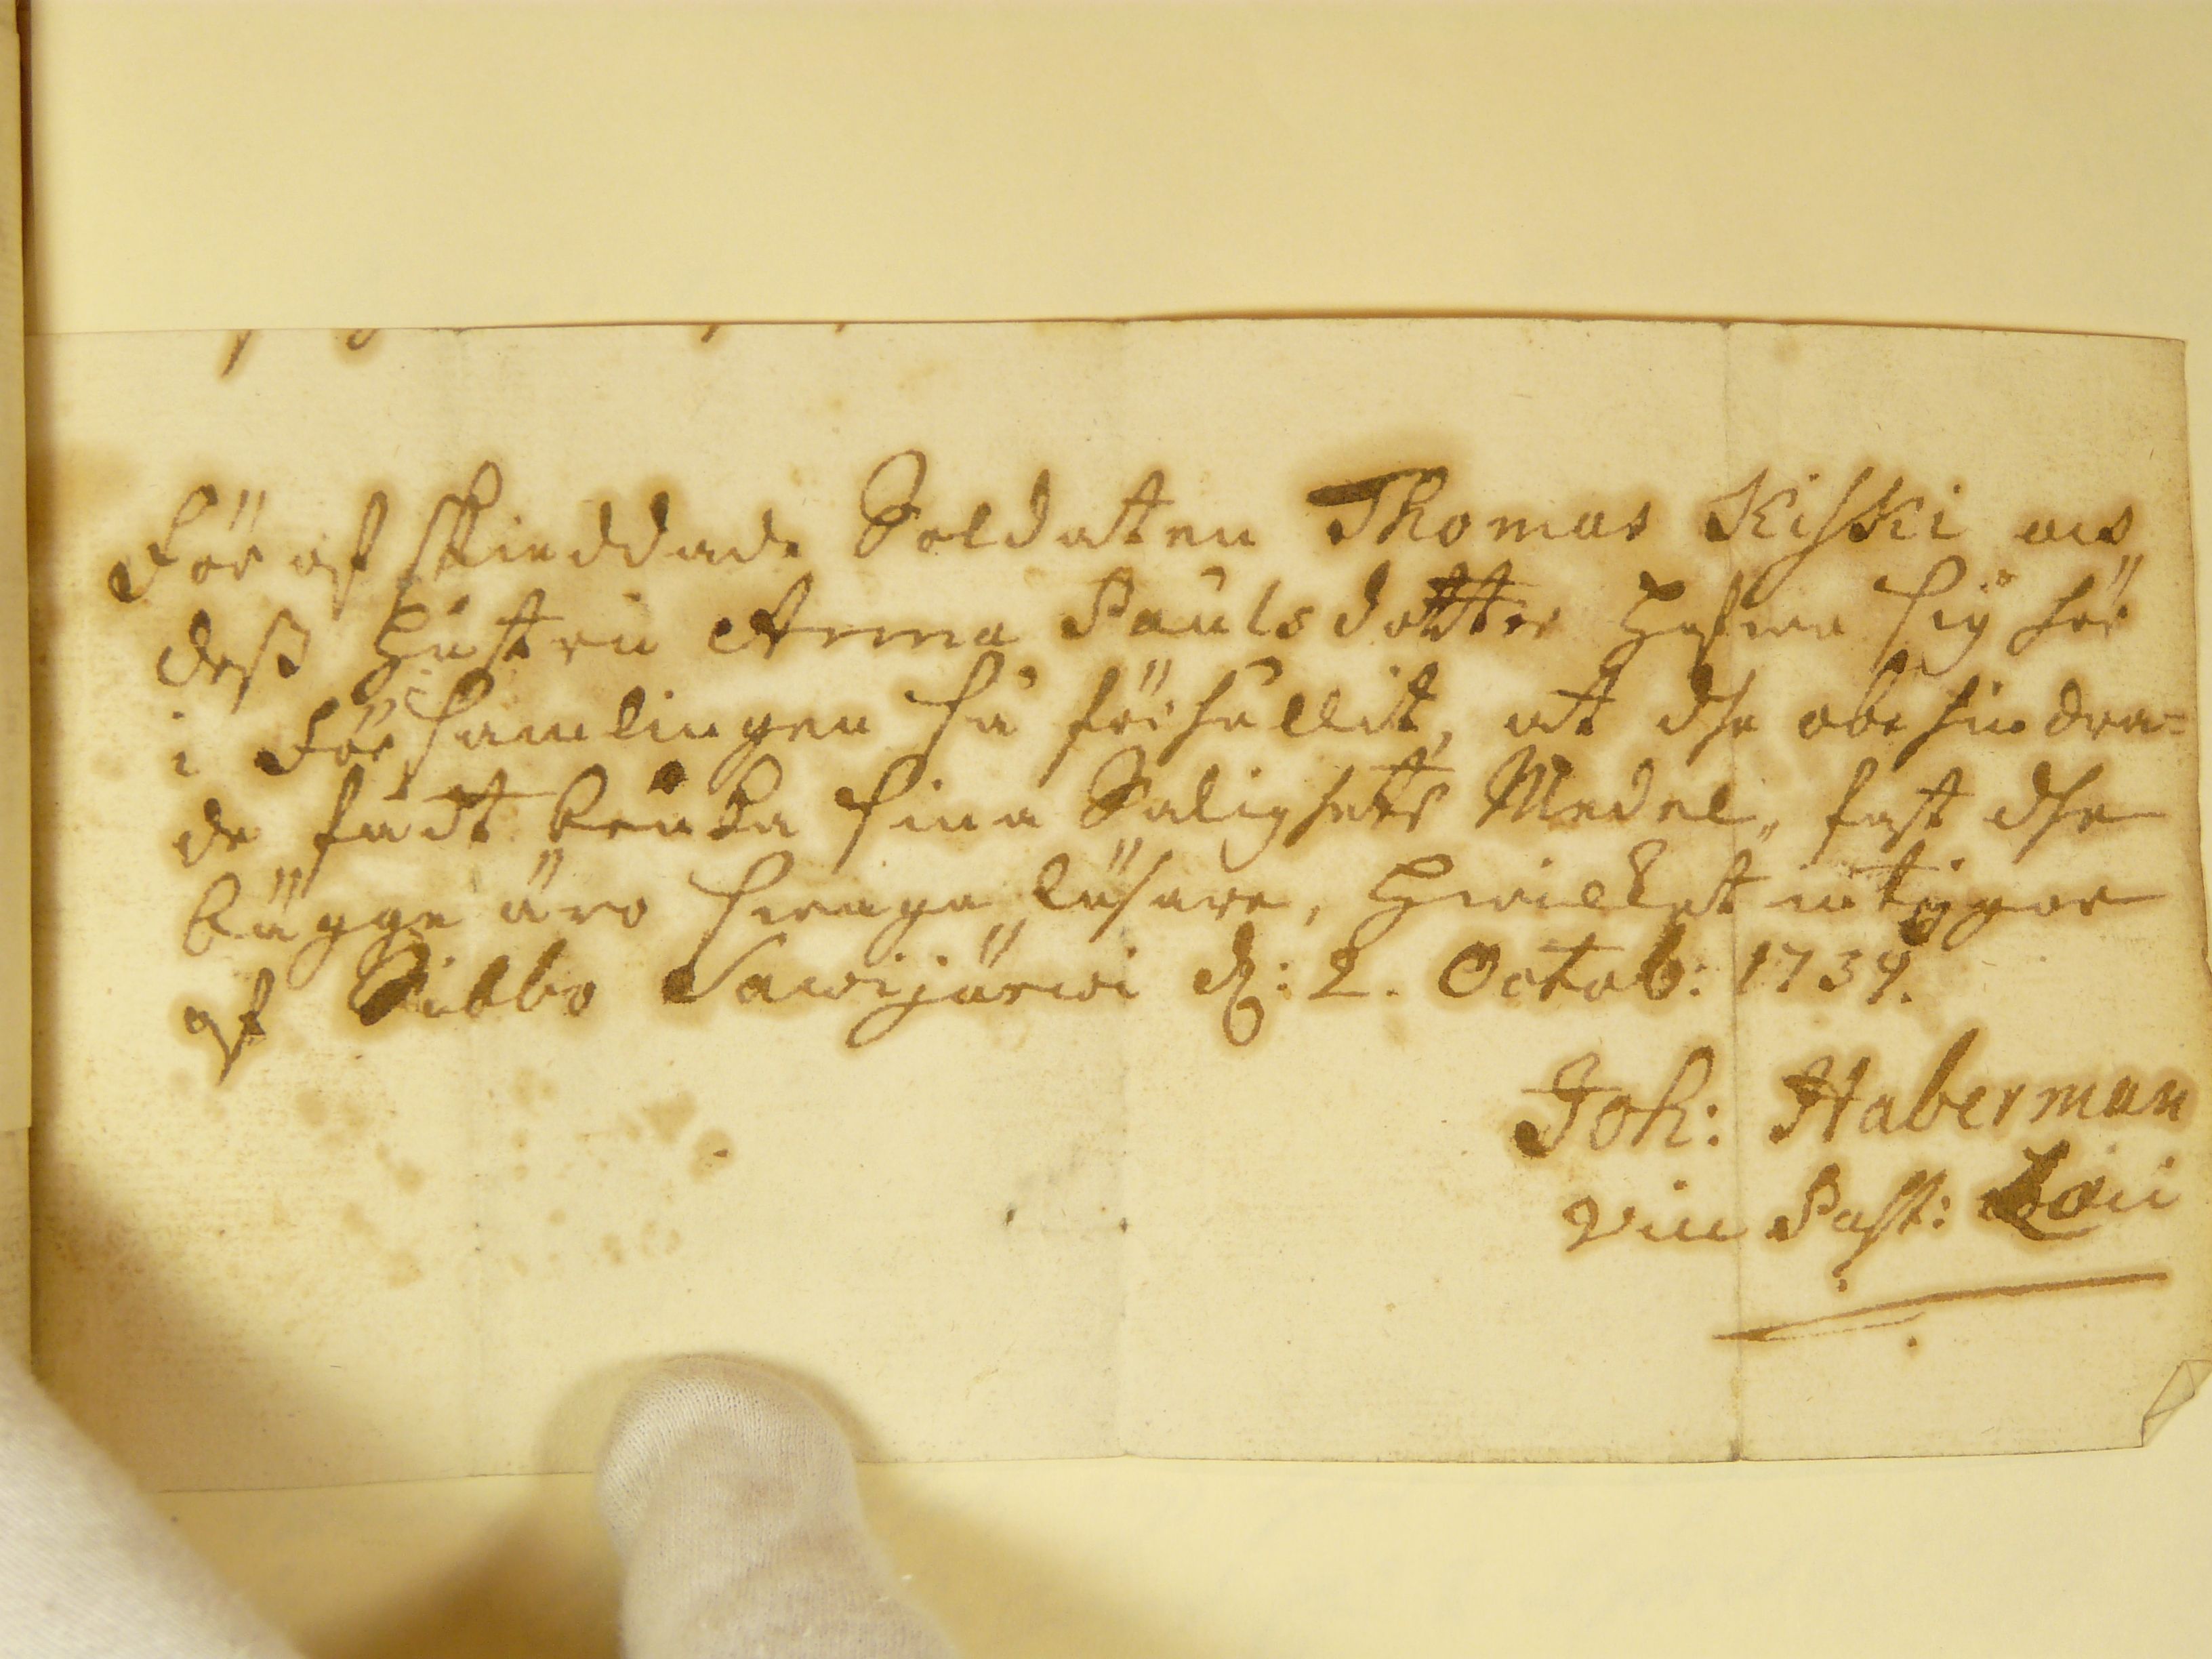 För afskieddade Soldaten Thomas Kiski och
deß Hustru Anna Paulsdotter hafwa sig här
i Församlingen så förhållit, at dhe obehindra=
de fådt bruka sina Salighets Medel, fast dhe
bägge äro swaga läsare, Hwilket intygar
af Sibbo Sawijärwi d: 2. Octob: 1734.
Joh: Haberman
Vice Past: Loci